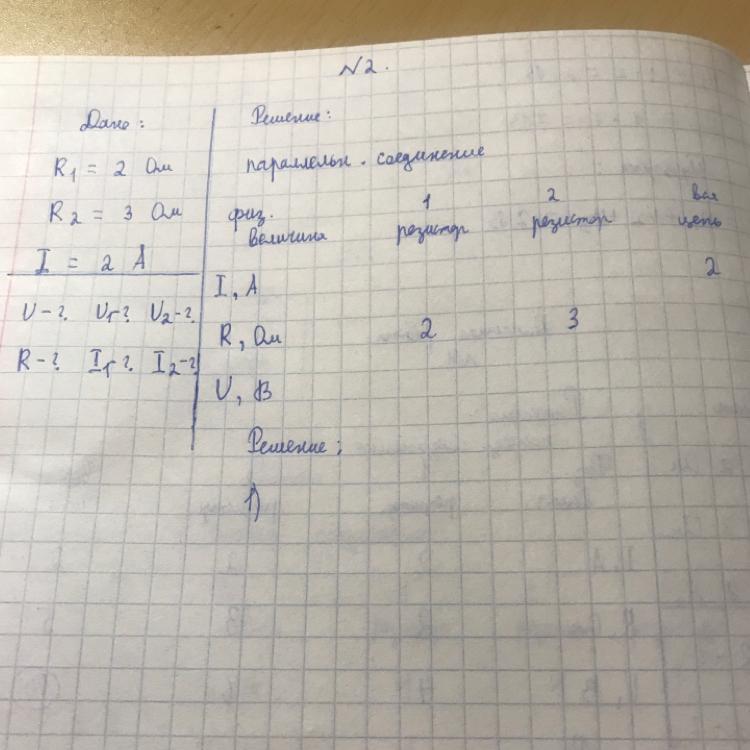 N2.
Дано:
R1 = 2 Ом
R2 = 3 Ом
I = 2 А
U-? U1-? U2-?
R-? I1-? I2-?
Решение:
параллельн. соединение
физ. величина 1 резистор 2 резистор вся цепь
I, А 2
R, Ом 2 3
U, В
Решение:
1)